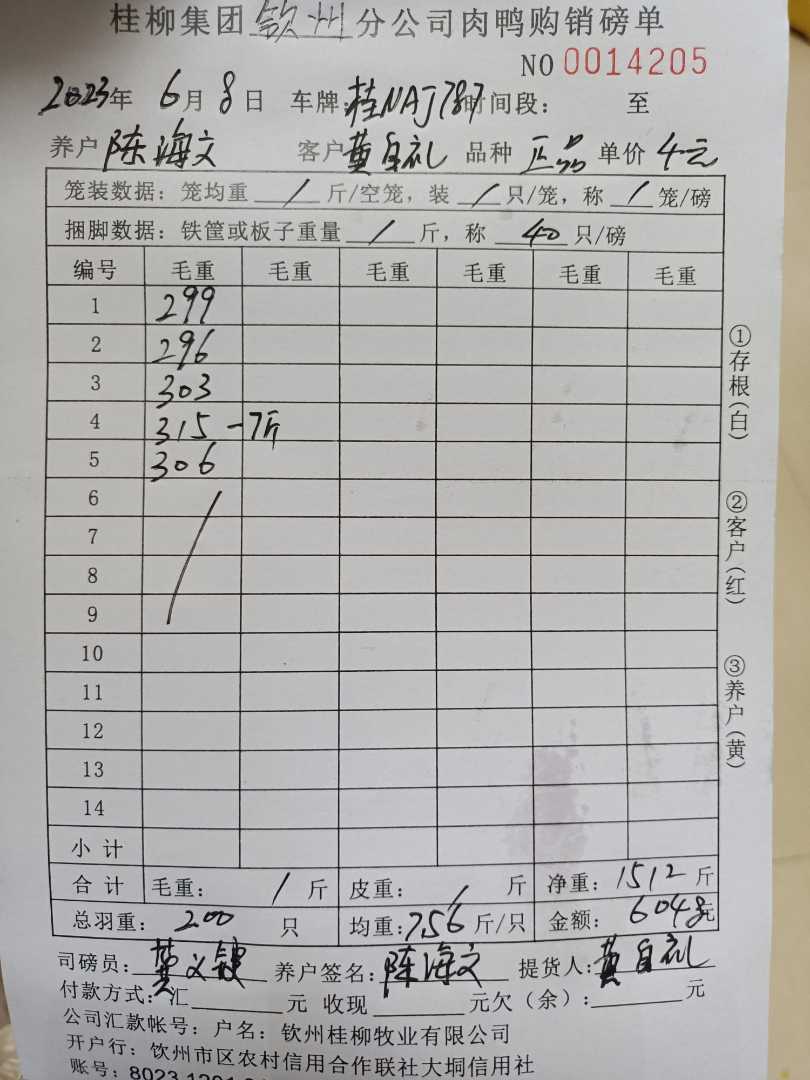 桂柳集团钦州分公司肉鸭购销磅单
NO 0014205
2023年 6月 8日 车牌:桂NAJ787 时间段: 至
养户 陈海文 客户 黄自礼 品种 正品 单价 4元
笼装数据: 笼均重 / 斤/空笼, 装 / 只/笼, 称 / 笼/磅
捆脚数据: 铁筐或板子重量 / 斤, 称 40 只/磅
编号 毛重 毛重 毛重 毛重 毛重 毛重
1 299
2 296
3 303
4 315 -7斤
5 306
6
7
8
9
10
11
12
13
14
小计
合计 毛重: / 斤 皮重: / 斤 净重: 1512 斤
总羽重: 200 只 均重: 7.56 斤/只 金额: 6048元
司磅员: 黄义 养户签名: 陈海文 提货人: 黄自礼
付款方式: 汇 元 收现 元欠(余): 元
公司汇款帐号: 户名: 钦州桂柳牧业有限公司
开户行: 钦州市区农村信用合作联社大垌信用社
账号: 8023 1201
①存根(白)
②客户(红)
③养户(黄)